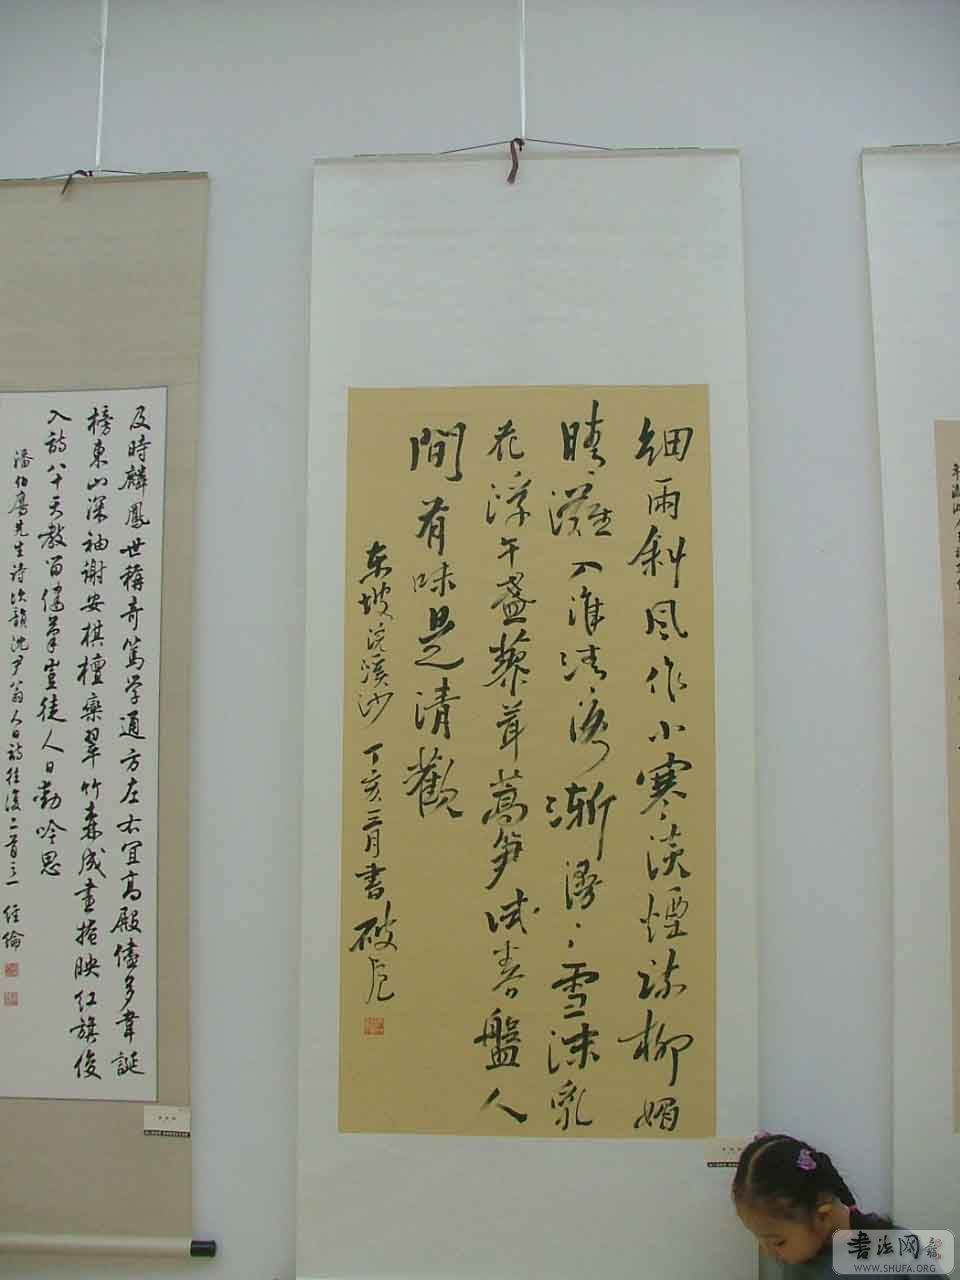 细雨斜风作小寒淡烟疏柳媚
晴滩入淮清洛渐漫〻雪沫乳
花浮午盏蓼茸蒿笋试春盘人
間有味是清歡
东坡浣溪沙 丁亥三月書 破危
及時麟鳳世稱奇篤学通方左右宜高殿儘多韋誕
榜東山深袖谢安棋檀欒翠竹森成畫掩映红旗俊
入詩八十天教留儁筆豈徒人日動吟思
潘伯鹰先生诗次韻沈尹翁人日詩往復二首之一 经倫
書法网
WWW.SHUFA.ORG